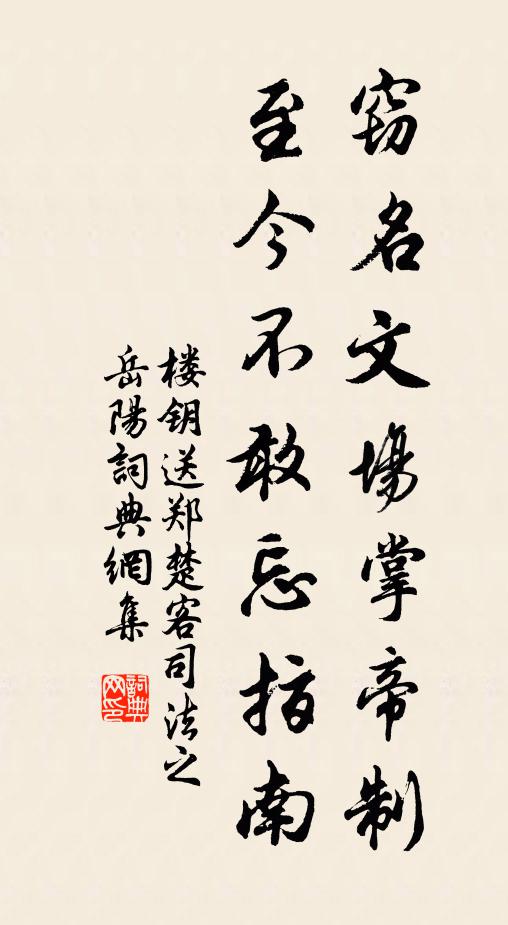 窃名文場掌帝制
至今不敢忘指南
楼钥送郑楚客司法之
岳陽詞典網集
詞典網印